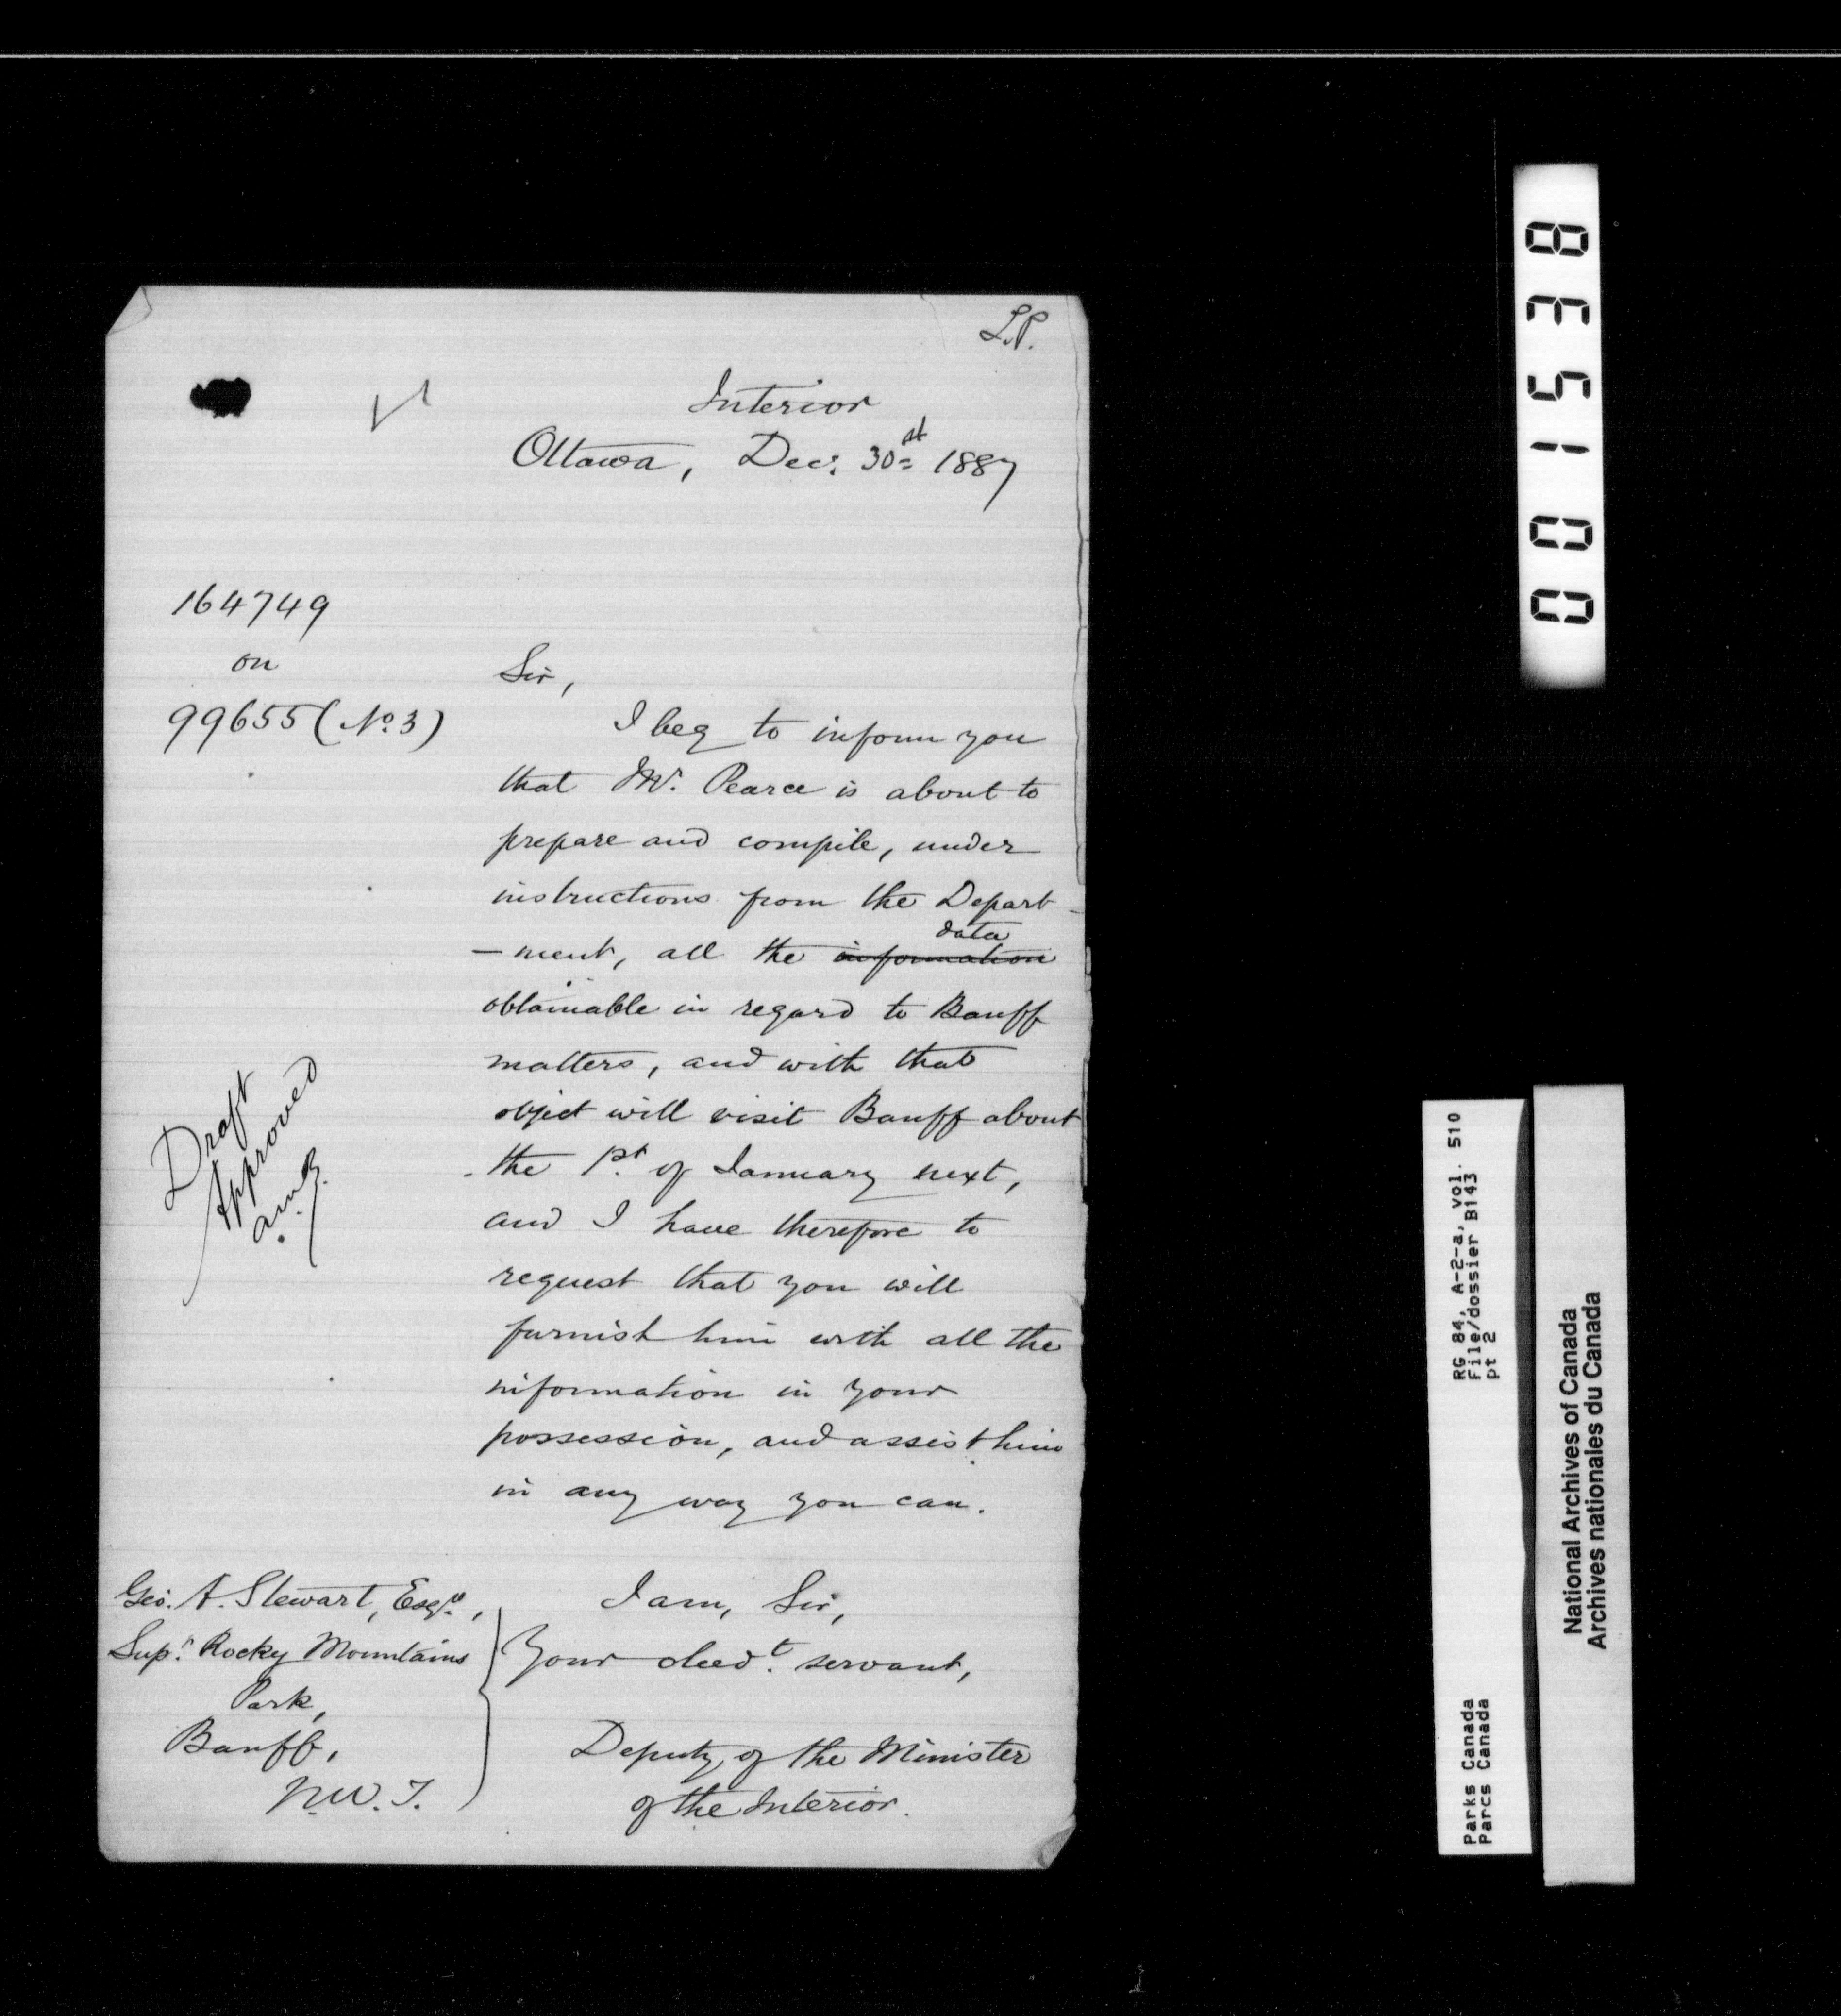 L.P.
Interior
Ottawa, Decr. 30st 1887
164749
on
99655 (No. 3)
Sir,
I beg to inform you
that Mr. Pearce is about to
prepare and compile, under
instructions from the Depart-
-ment, all the information data
obtainable in regard to Banff
matters, and with that
object will visit Banff about
the 1st. of January next,
and I have therefore to
request that you will
furnish him with all the
information in your
possession, and assist him
in any way you can.
Draft
Approved
Geo. A. Stewart, Esqre.,
Supt. Rocky Mountains
Park,
Banff,
N.W.T.
I am, Sir,
Your obedt. servant,
Deputy of the Minister
of the Interior.
001538
RG 84, A-2-a, vol. 510
File/dossier B143
pt 2
Parks Canada
Parcs Canada
National Archives of Canada
Archives nationales du Canada